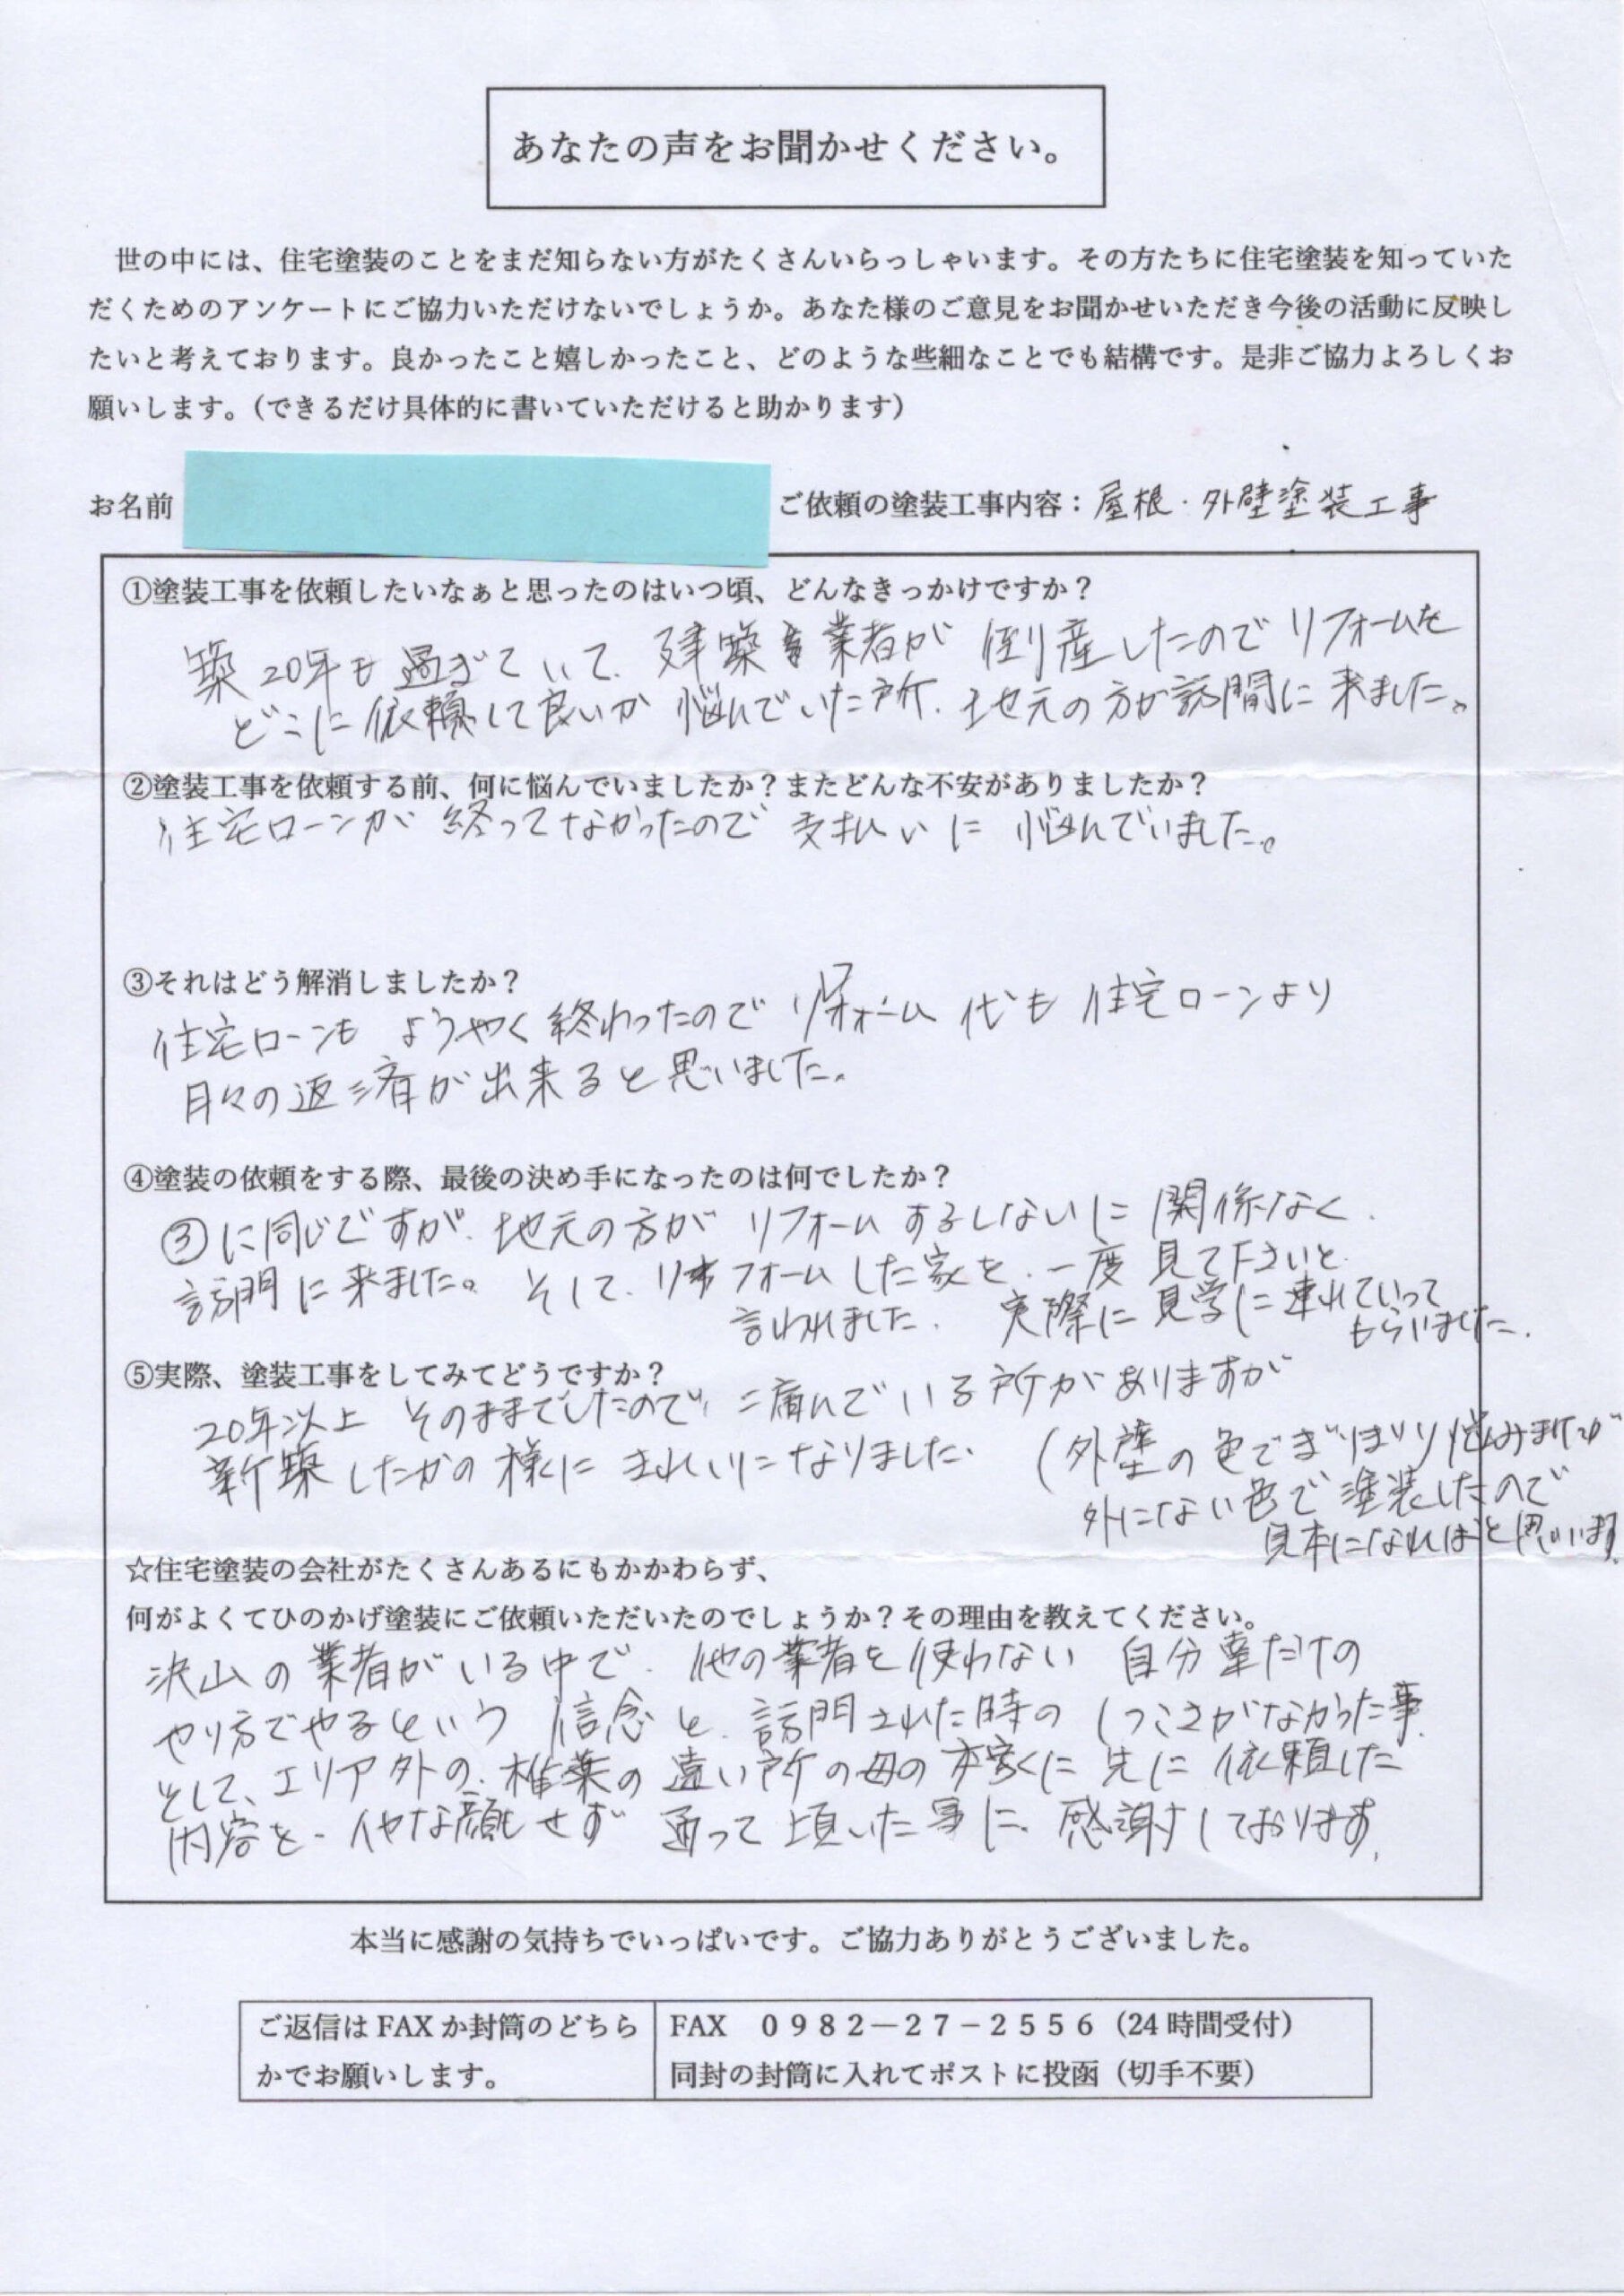 あなたの声をお聞かせください。
世の中には、住宅塗装のことをまだ知らない方がたくさんいらっしゃいます。その方たちに住宅塗装を知っていた
だくためのアンケートにご協力いただけないでしょうか。あなた様のご意見をお聞かせいただき今後の活動に反映し
たいと考えております。良かったこと嬉しかったこと、どのような些細なことでも結構です。是非ご協力よろしくお
願いします。（できるだけ具体的に書いていただけると助かります）
お名前 ご依頼の塗装工事内容：屋根・外壁塗装工事
①塗装工事を依頼したいなぁと思ったのはいつ頃、どんなきっかけですか？
築20年も過ぎていて、建築業者が倒産したのでリフォームを
どこに依頼して良いか悩んでいた所、地元の方が訪問に来ました。
②塗装工事を依頼する前、何に悩んでいましたか？またどんな不安がありましたか？
住宅ローンが終ってなかったので支払いに悩んでいました。
③それはどう解消しましたか？
住宅ローンもようやく終わったのでリフォーム代も住宅ローンより
月々の返済が出来ると思いました。
④塗装の依頼をする際、最後の決め手になったのは何でしたか？
③に同じですが、地元の方がリフォームするしないに関係なく、
訪問に来ました。そして、リフォームした家を、一度見て下さいと
言われました。実際に見学に連れていって
もらいました。
⑤実際、塗装工事をしてみてどうですか？
20年以上そのままでしたので、痛んでいる所がありますが
新築したかの様にきれいになりました。（外壁の色でぎりぎり悩みましたが
外にない色で塗装したので
見本になればと思います。
☆住宅塗装の会社がたくさんあるにもかかわらず、
何がよくてひのかげ塗装にご依頼いただいたのでしょうか？その理由を教えてください。
沢山の業者がいる中で、他の業者を使わない自分達だけの
やり方でやるという信念と、訪問された時のしつこさがなかった事、
そして、エリア外の、椎葉の遠い所の母の本家に先に依頼した
内容を、イヤな顔もせず通って頂いた事に、感謝しております。
本当に感謝の気持ちでいっぱいです。ご協力ありがとうございました。
ご返信はFAXか封筒のどちら
かでお願いします。
FAX ０９８２－２７－２５５６（24時間受付）
同封の封筒に入れてポストに投函（切手不要）